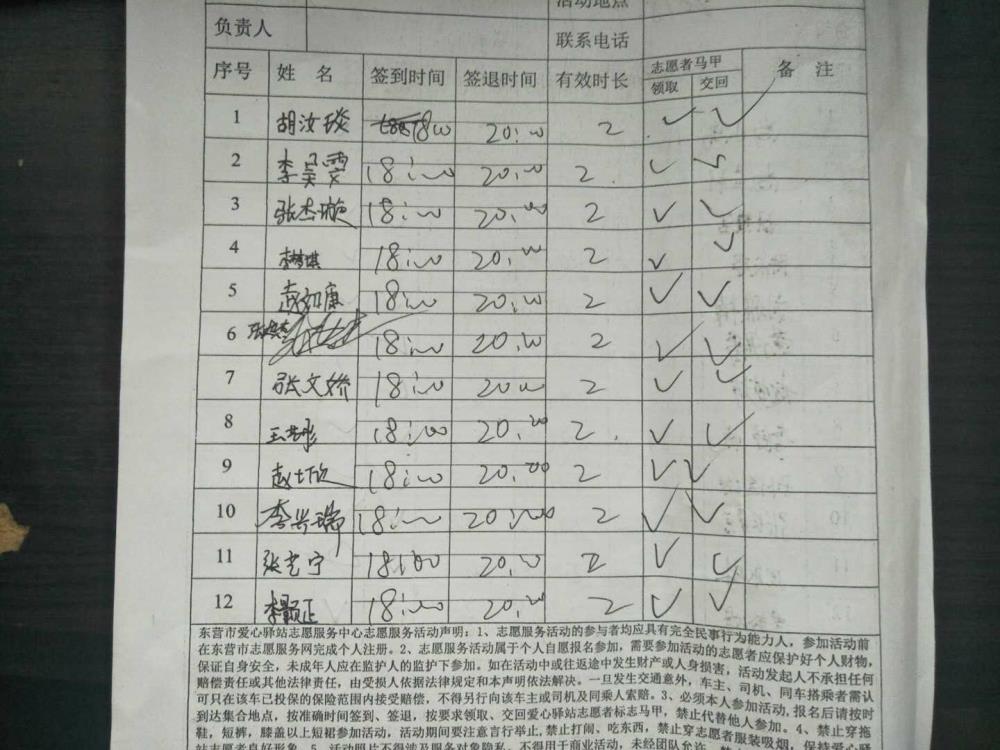 活动地点
负责人 联系电话
序号 姓 名 签到时间 签退时间 有效时长 志愿者马甲 备 注
领取 交回
1 胡汝琰 18:00 20:00 2 ✓ ✓
2 李昊雯 18:00 20:00 2 ✓ ✓
3 张杰璇 18:00 20:00 2 ✓ ✓
4 李梦琪 18:00 20:00 2 ✓ ✓
5 赵如康 18:00 20:00 2 ✓ ✓
6 18:00 20:00 2 ✓ ✓
7 张文娇 18:00 20:00 2 ✓ ✓
8 18:00 20:00 2 ✓ ✓
9 赵 18:00 20:00 2 ✓ ✓
10 李兴瑞 18:00 20:00 2 ✓ ✓
11 张艺宁 18:00 20:00 2 ✓ ✓
12 李颢正 18:00 20:00 2 ✓ ✓
东营市爱心驿站志愿服务中心志愿服务活动声明：1、志愿服务活动的参与者均应具有完全民事行为能力人，参加活动前
在东营市志愿服务网完成个人注册。2、志愿服务活动属于个人自愿报名参加，需要参加活动的志愿者应保护好个人财物，
保证自身安全，未成年人应在监护人的监护下参加。如在活动中或往返途中发生财产或人身损害，活动发起人不承担任何
赔偿责任或其他法律责任，由受损人依据法律规定和本声明依法解决。一旦发生交通意外，车主、司机、同车搭乘者需认
可只在该车已投保的保险范围内接受赔偿，不得另行向该车主或司机及同乘人索赔。3、必须本人参加活动，报名后请按时
到达集合地点，按准确时间签到、签退，按要求领取、交回爱心驿站志愿者标志马甲，禁止代替他人参加。4、禁止穿拖
鞋，短裤，膝盖以上短裙参加活动，活动期间要注意言行举止，禁止打闹、吃东西，禁止穿志愿者服装吸烟，保持爱心驿
站志愿者良好形象。5、活动照片不得涉及服务对象隐私，不得用于商业活动，未经团队允许，禁